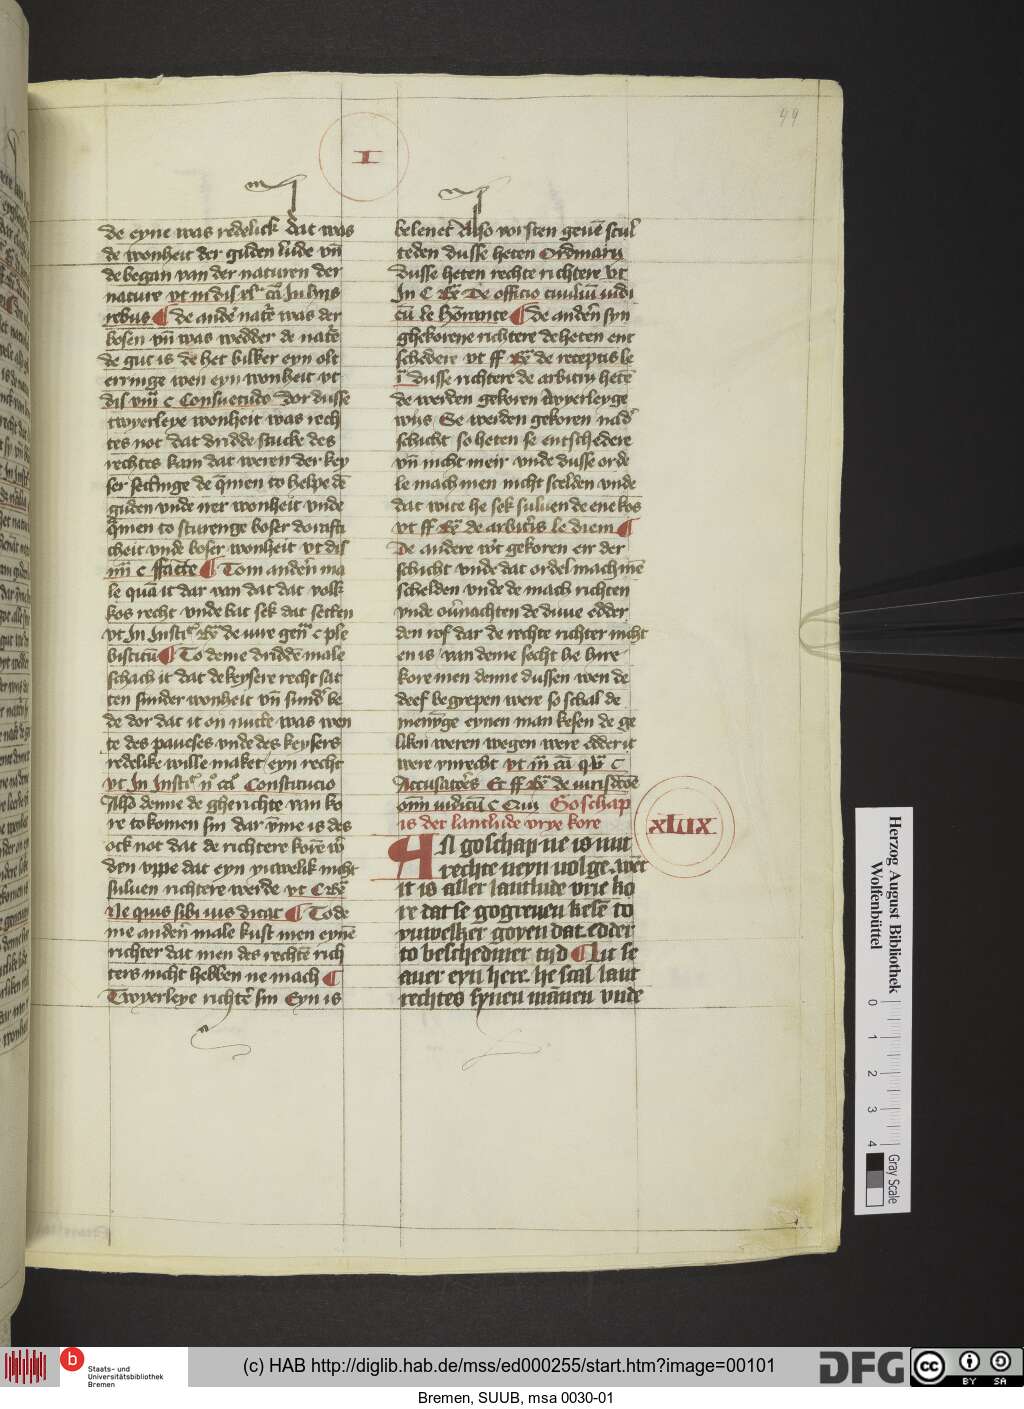 I
99
de eyne was redelick dat was
de wonheit der guden lude vn̄
de began van der naturen der
nature vt in dis
rebus ¶ de andē natr̄e was der
bosen vn̄ was wedder de natr̄e
de gut is de het bilker eyn olt
erringe wen eyn wonheit vt
dis viii c Consuetudo Dor dusse
twyerleye wonheit was rech
tes not dat dridde stucke des
rechtes kam dat weren der key
ser settinge de q̄men to helpe dē
guden vnde ner wonheit vnde
q̄men to sturenge boser dorafti
cheit vnde boser wonheit vt dis
iiii c ffācte ¶ Tom andern ma
le quā it dar van dat dat volk
kos recht vnde bat sek dat setten
vt In Insti de iure gen c ple
bistitū ¶ To deme dridden male
schach it dat de keysere recht sat
ten sunder wonheit vn̄ sund' be
de dor dat it on nutte was wen
te des paueses vnde des keysers
redelike wille maket eyn recht
vt In Insti Constitucio
Also denne de gherichte van ko
re tokomen sin dar vm̄e is des
ock not dat de richtere korē w̄
den vppe dat eyn yuwelik nicht
suluen richtere werde vt C
Ne quis sibi ius dicat ¶ To de
me andern male kust men eynē
richter dat men des rechtē rich
ters nicht hebben ne mach ¶
Twyerleye richtē sin Eyn is
belenet Also vorsten geuē scul
teden dusse heten Ordinarii
dusse heten rechte richtere vt
In C De officio ciuiliū iudi
cū le ¶ de andern syn
ghekorene richtere de heten ent
schedere vt ff de receptis le
i dusse richtere de arbitrij hetē
de werden gekoren twyerleyge
wijs Se werden gekoren nad'
schicht so heten se entschedere
vn̄ nicht meir vnde dusse orde
le mach men nicht scelden vnde
dat wite he sek suluen de ene kos
vt ff de arbitris le diem ¶
De andere w't gekoren eir der
schicht vnde dat ordel mach mē
schelden vnde de mach richten
vnde ou'nachten de duue edder
den rof dar de rechte richter nicht
en is van deme socht
kore men denne dussen wen de
deef begrepen were so schal de
menyge eynen man kesen de ge
liken weren wegen were edder it
were vnrecht vt
Accusatores Et ff de iurisdictōe
omn iudicū c Cui Goschap
is der lantlude vrye kore
xlix
AN goschap ne is nut
rechte neyn uolge wēt
it is aller lantlude vrie ko
re dat se gogreuen kesē to
yuwelker goyen dat edder
to bescheduier tijd ¶ Alt se
auer eyn here he scal lant
rechtes synen mānen vnde
Herzog August Bibliothek
Wolfenbüttel
0 1 2 3 4
Gray Scale
b
Staats- und
Universitätsbibliothek
Bremen
(c) HAB http://diglib.hab.de/mss/ed000255/start.htm?image=00101
DFG
cc BY SA
Bremen, SUUB, msa 0030-01